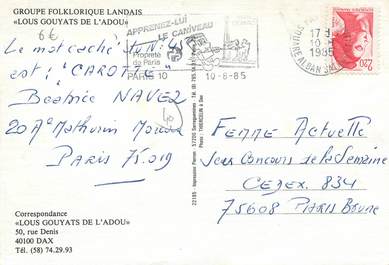 GROUPE FOLKLORIQUE LANDAIS
«LOUS GOUYATS DE L'ADOU»
6€
Le mot caché du N: 45
est : "CAROTTE"
Béatrice NAVEZ
20 A Mathurin Moreau
Paris 75.019
Correspondance
«LOUS GOUYATS DE L'ADOU»
50, rue Denis
40100 DAX
Tél. (58) 74.29.93
APPRENEZ-LUI
LE CANIVEAU
Propreté
de Paris
PARIS 10
10-6-85
17 H
10-
1985
2,20
22185 - Impression Pierron - 57206 Sarreguemines - Tél. (8)
Photo : THIENCELIN à Dax
Femme Actuelle
Jeu Concours de la Semaine
CEDEX. 834
75608 PARIS BRUNE